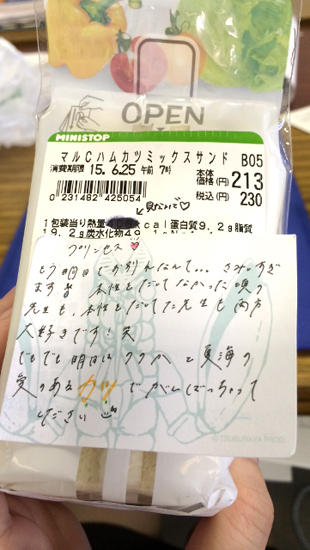 OPEN
MINISTOP
マルCハムカツミックスサンド B05
消費期限 15.6.25 午前 7時
本体価格(円) 213
0231482425054
税込(円) 230
1包装当り熱量 kcal蛋白質9.2g脂質
19.2g炭水化物4
プリンセス♡
もう明日でお別れなんて… さみしすぎ
ます 本性をだしてなかった頃の
先生も、本性をだしてた先生も両方
大好きです！笑
でも明日は と東海の
愛のあるカツでがんばっちゃって
ください
©TSUBURAYA PROD.